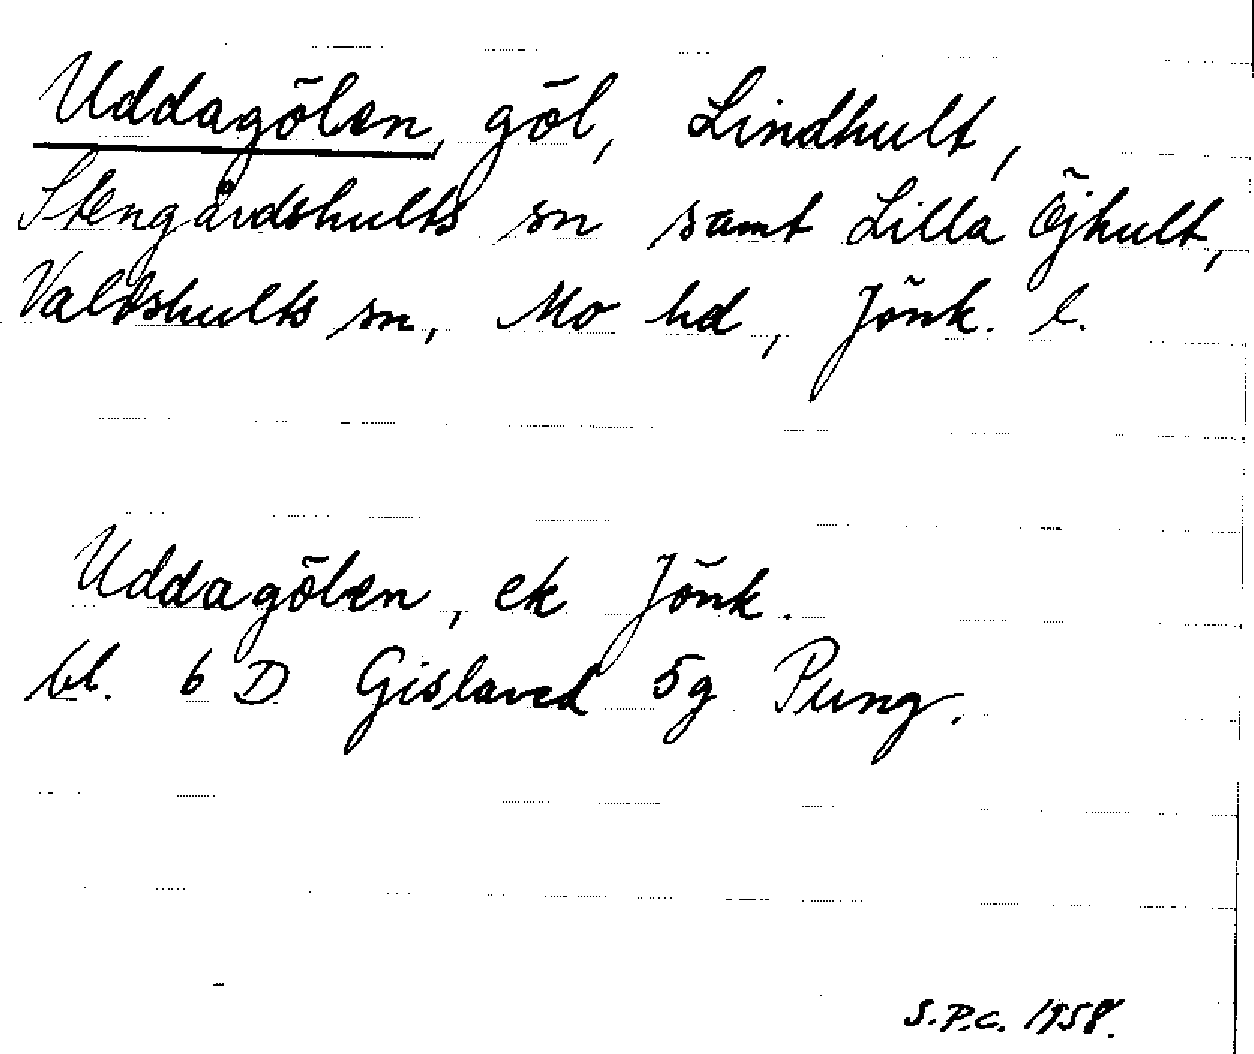 Uddagölen, göl, Lindhult,
Stengårdshults sn samt Lilla Öjhult,
Valdshults sn, Mo hd, Jönk. l.
Uddagölen, ek Jönk.
bl. 6 D Gislaved 5g Pung.
S.P.C. 1958.